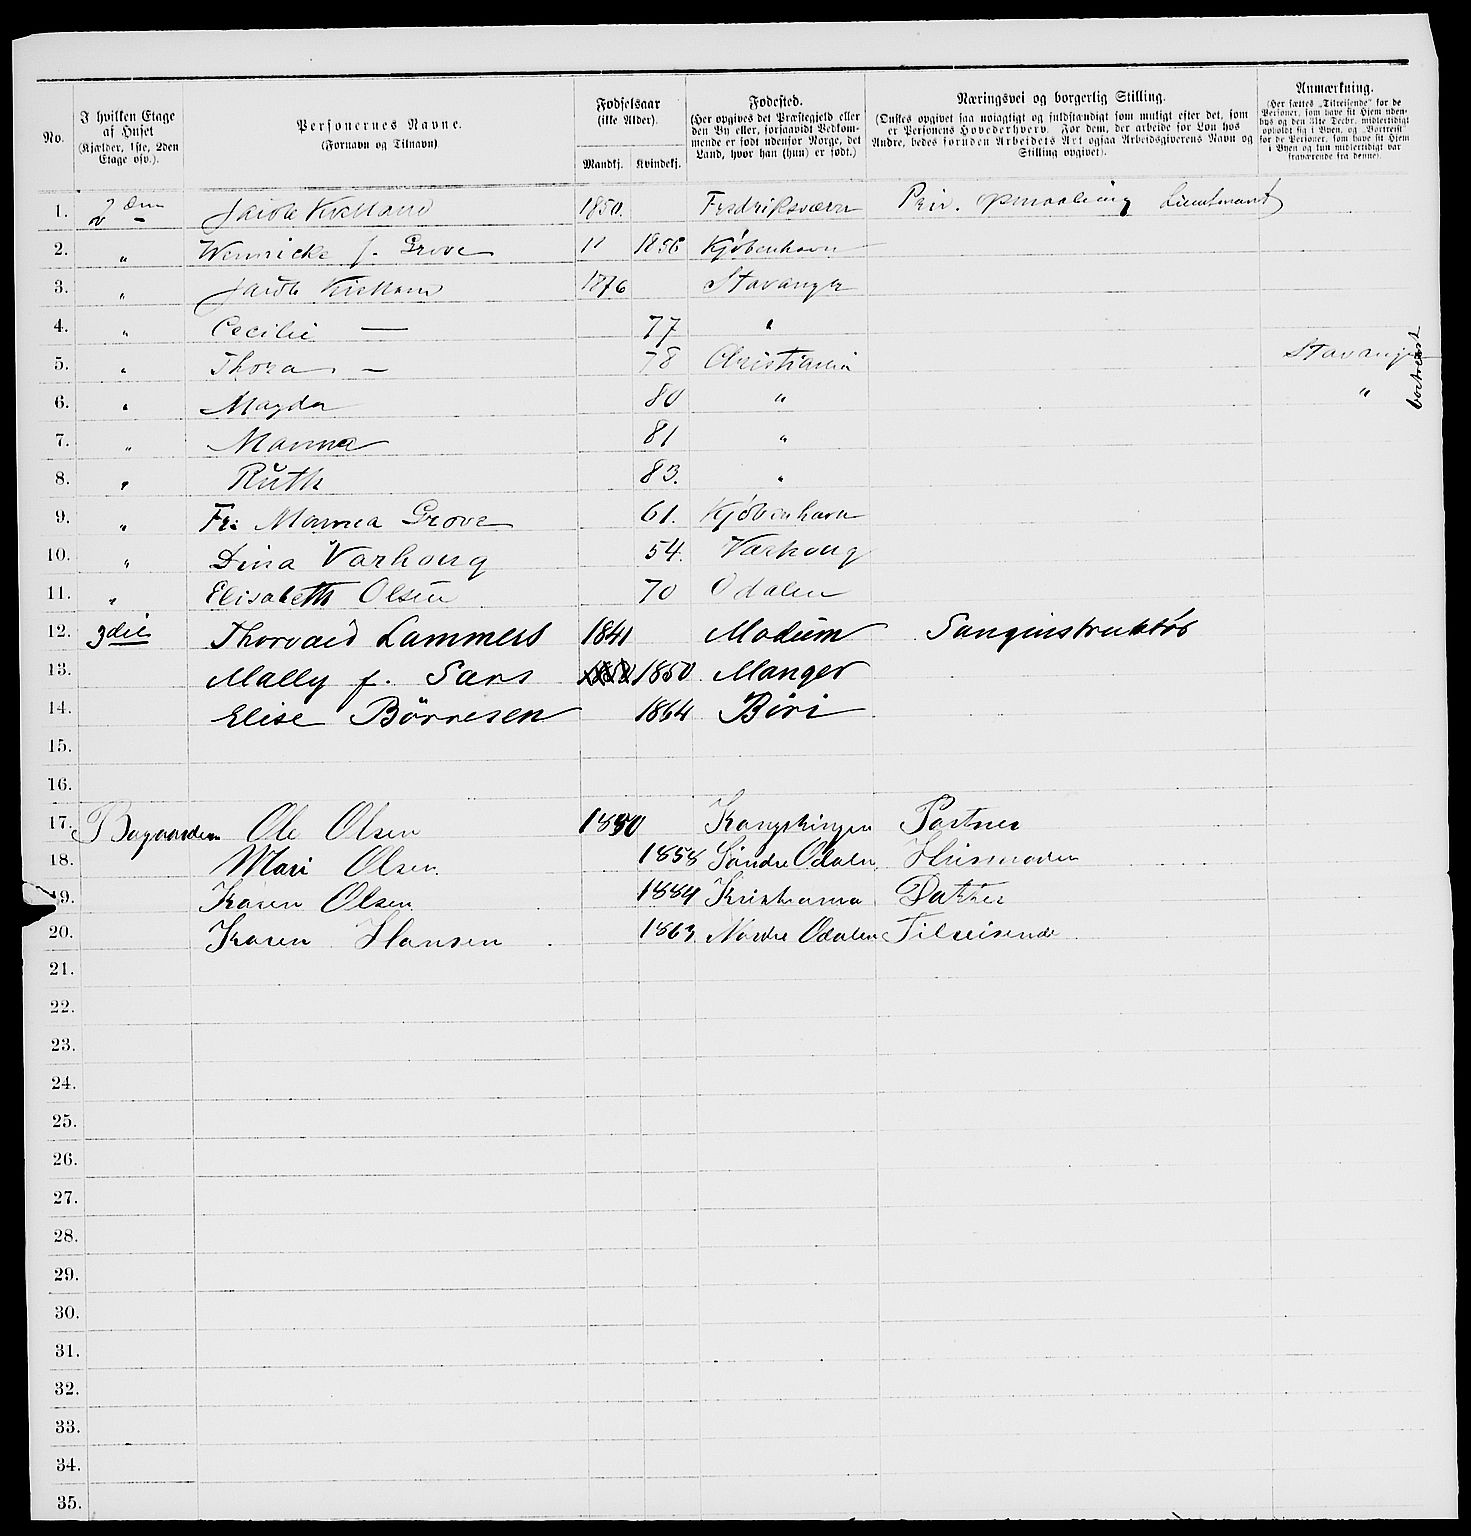 No. I hvilken Etage af Huset (Kjælder, 1ste, 2den Etage osv.). Personernes Navne. (Fornavn og Tilnavn) Fødselsaar (ikke Alder). Mandkj. Kvindekj. Fødested. (Her opgives det Præstegjeld eller den By eller, forsaavidt Vedkommende er født udenfor Norge, det Land, hvor han (hun) er født.) Næringsvei og borgerlig Stilling. (Ønskes opgivet saa nøiagtigt og fuldstændigt som muligt efter det, som er Personens Hovederhverv. For dem, der arbeide for Løn hos Andre, bedes foruden Arbeidets Art ogsaa Arbeidsgiverens Navn og Stilling opgivet). Anmærkning. (Her sættes „Tilreisende" for de Personer, som have sit Hjem udenbys og den 31te Decbr. midlertidigt opholdt sig i Byen, og „Bortreist" for de Personer, som have sit Hjem i Byen og kun midlertidigt var fraværende fra denne).
1. 2 den Jacob Kielland 1850. Fredriksværn Priv. opmaaling Lieutenant
2. " Wennicke f. Grove " 1856 Kjøbenhavn
3. " Jacob Kielland 1876 Stavanger
4. " Cecilie — 77 "
5. " Thora — 78 Christiania Stavanger bortreist
6. " Magda 80 " "
7. " Manna 81 "
8. " Ruth 83. "
9. " Frk Manna Grove 61. Kjøbenhavn
10. " Dina Varhoug 54. Varhoug
11. " Elisabeth Olsen 70 Odalen
12. 3die Thorvald Lammers 1841 Modum Sanginstruktør
13. Mally f. Sars 1850 Manger
14. Elise Börresen 1864 Biri
15.
16.
17. Bagaarden Ole Olsen 1850 Kongsvinger Portner
18. Mari Olsen. 1858 Søndre Odalen Husmoder
19. Karen Olsen 1884 Kristiania Datter
20. Karen Hansen 1863 Nordre Odalen Tilreisende
21.
22.
23.
24.
25.
26.
27.
28.
29.
30.
31.
32.
33.
34.
35.